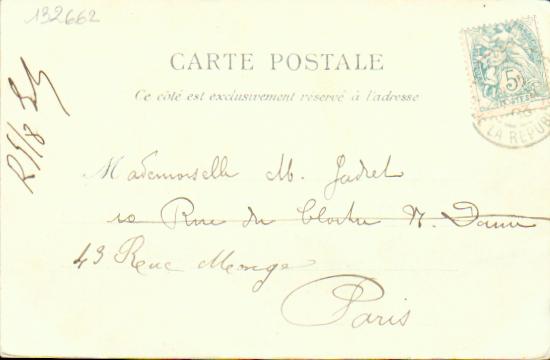 132662
CARTE POSTALE
Ce côté est exclusivement réservé à l'adresse
5c
LA REPUB
Mademoiselle M. Jadret
10 Rue du Cloitre N. Dame
43 Rue Monge
Paris